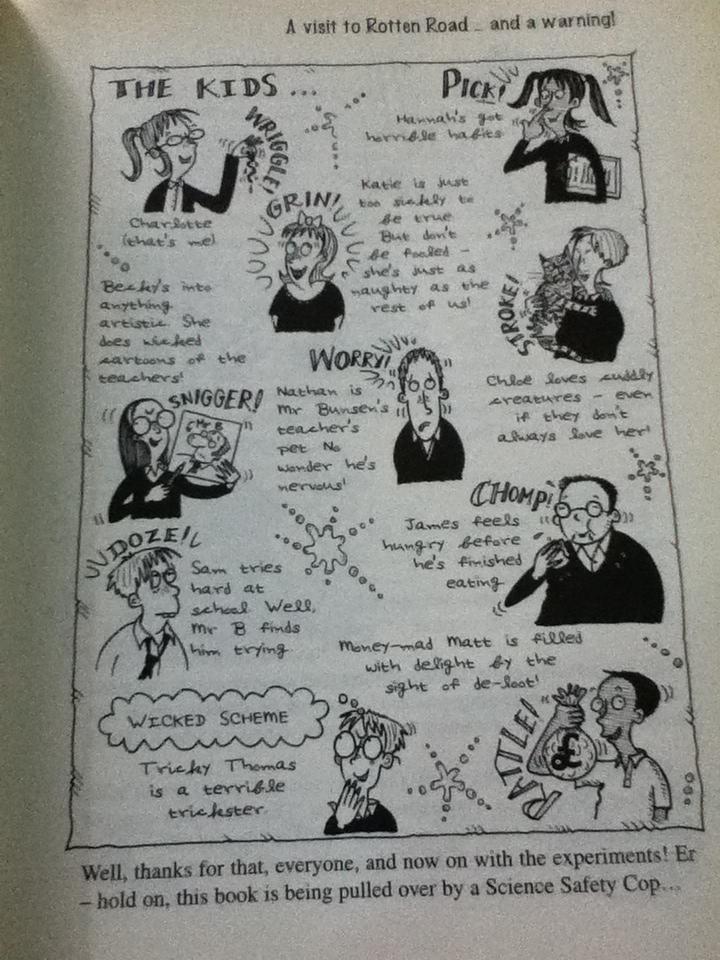 A visit to Rotten Road ... and a warning!
THE KIDS ...
WRIGGLE!
Charlotte
(that's me)
PICK!
Hannah's got
horrible habits
GRIN!
Katie is just
too sickly to
be true
But don't
be fooled –
she's just as
naughty as the
rest of us!
STROKE!
Chloe loves cuddly
creatures – even
if they don't
always love her!
Becky's into
anything
artistic. She
does wicked
cartoons of the
teachers!
SNIGGER!
Mr B
WORRY!
Nathan is
Mr Bunsen's
teacher's
pet No
wonder he's
nervous!
CHOMP!
James feels
hungry before
he's finished
eating
DOZE!
Sam tries
hard at
school Well,
Mr B finds
him trying
Money-mad Matt is filled
with delight by the
sight of de-loot!
RATTLE!
£
WICKED SCHEME
Tricky Thomas
is a terrible
trickster
Well, thanks for that, everyone, and now on with the experiments! Er
– hold on, this book is being pulled over by a Science Safety Cop...